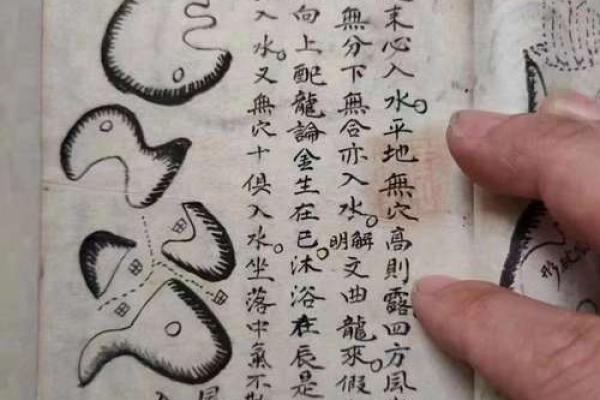 束心入水平地無穴高則露四方風
無分下無合亦入水明解文曲龍來假
向上配龍論金生在巳沐浴在辰是
入水又無穴十俱入水坐落中氣不
形